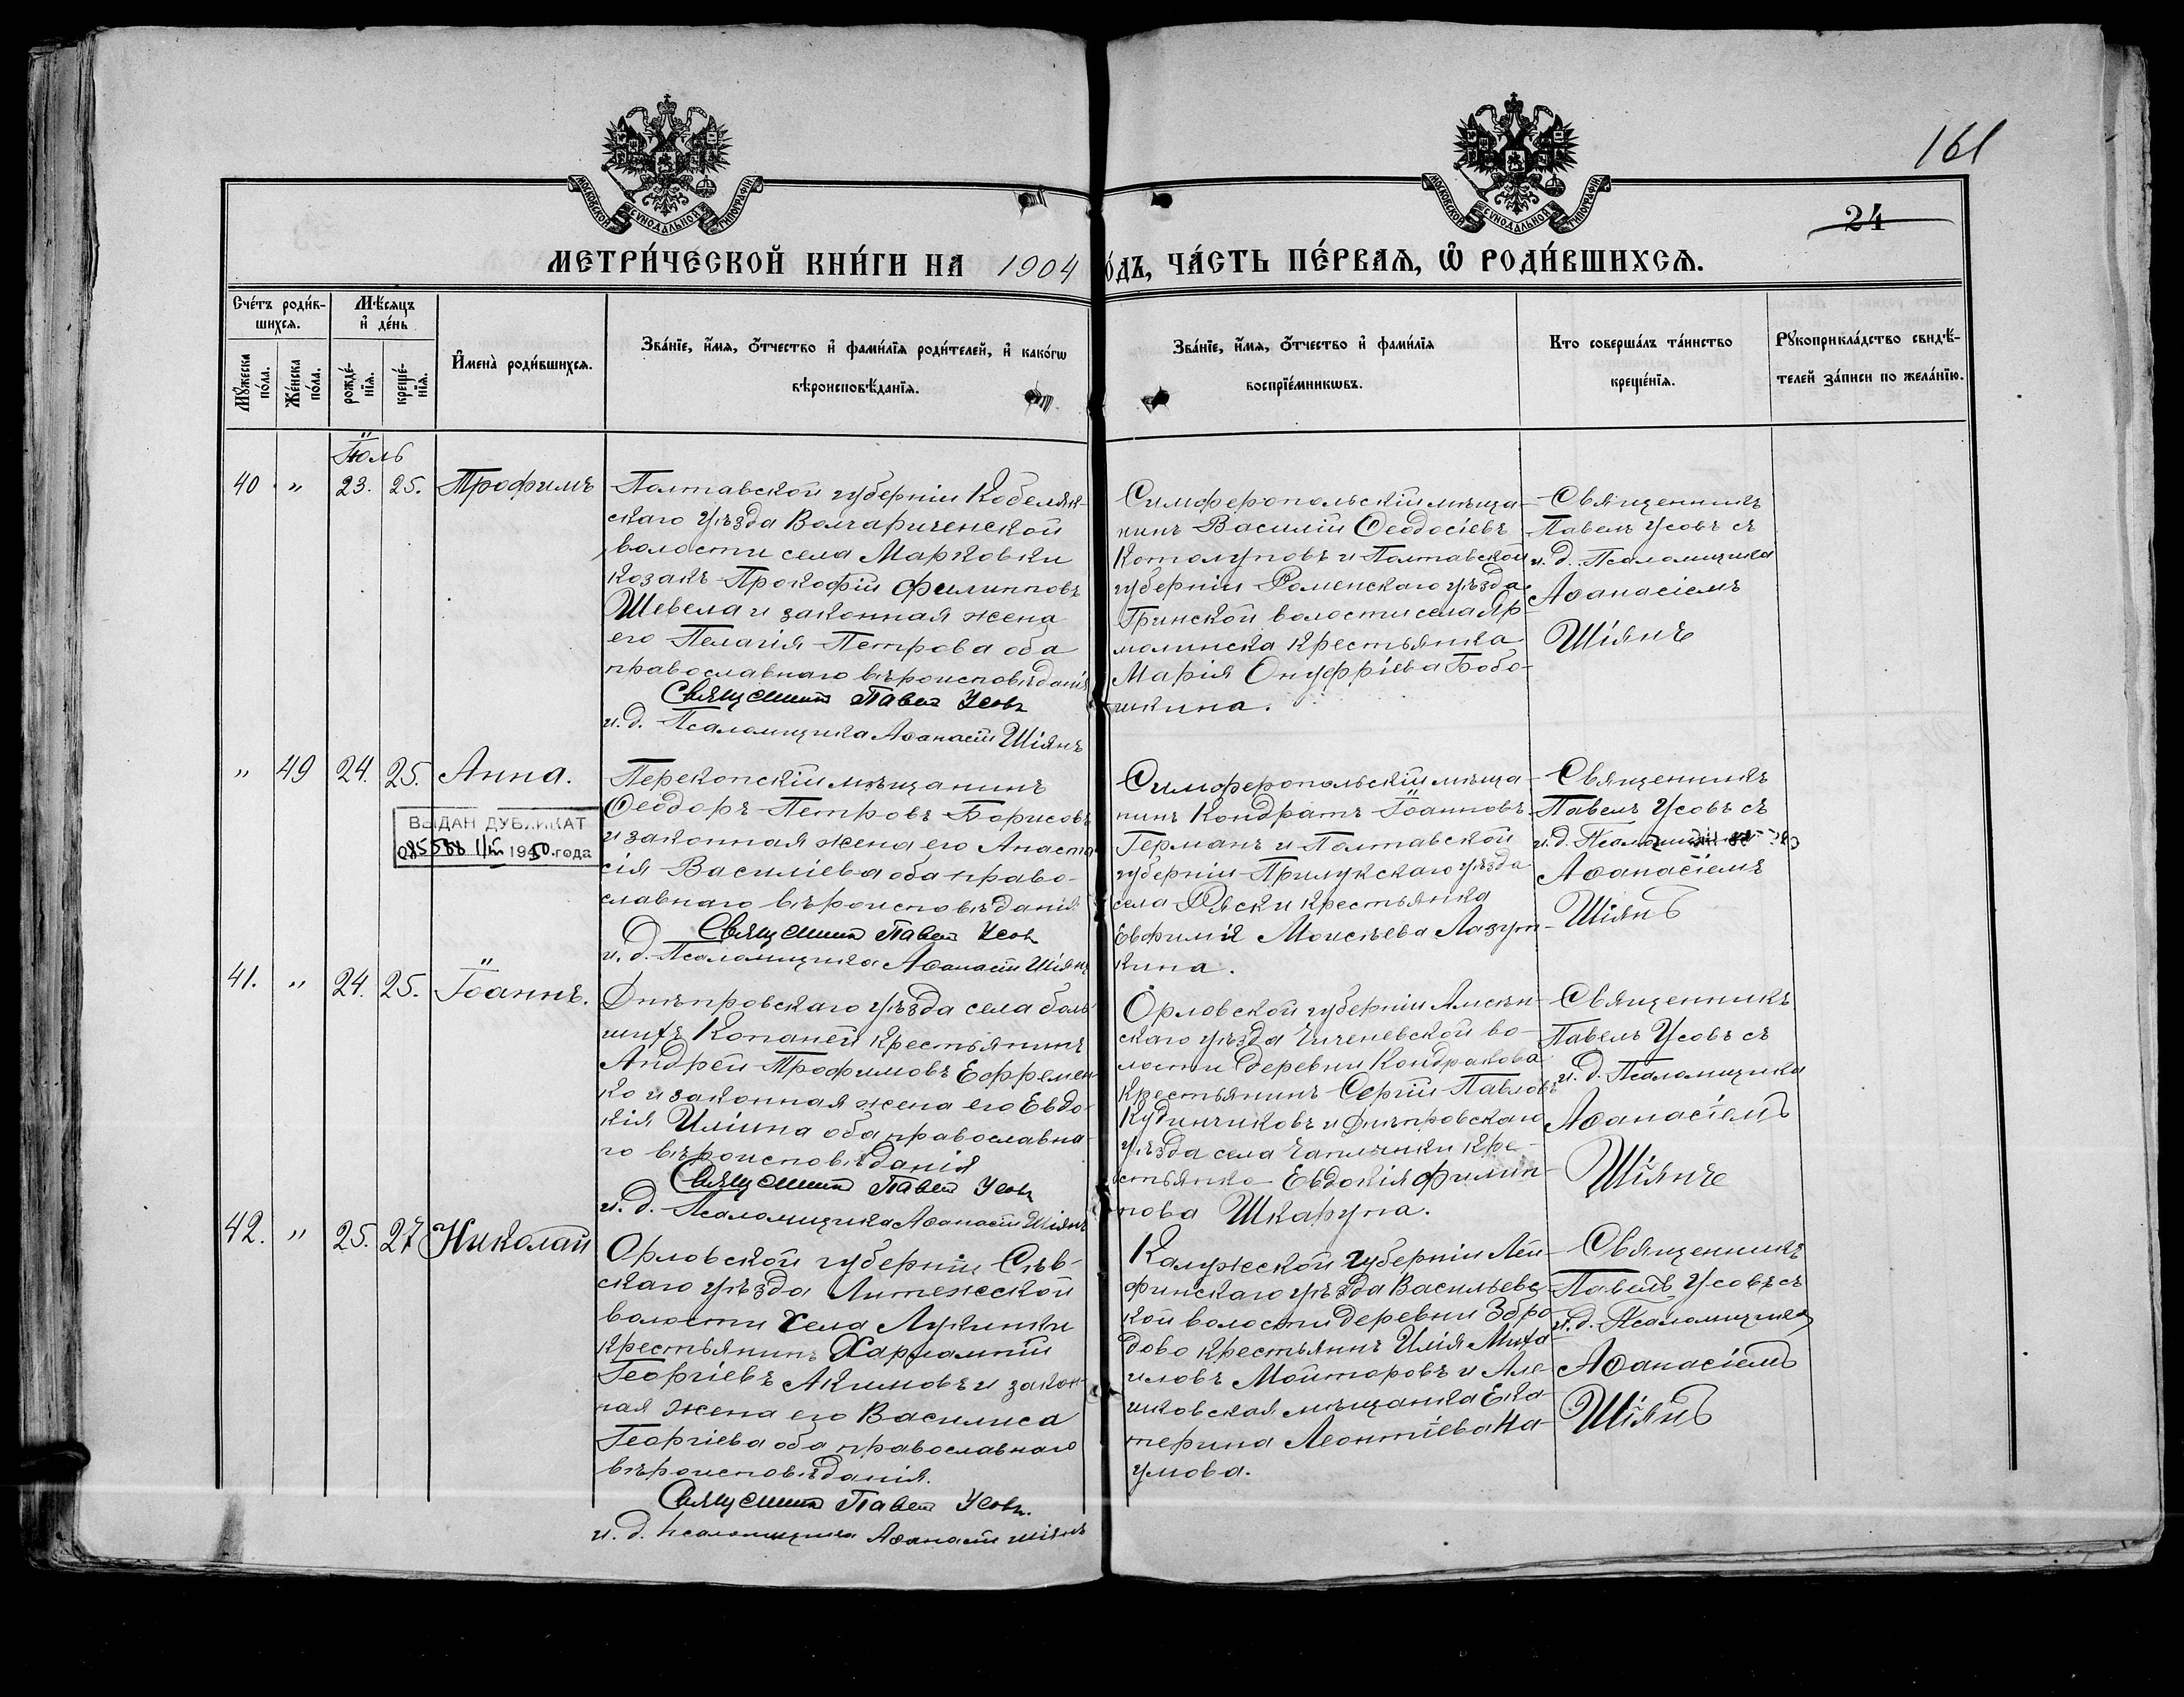 161
24
МОСКОВСКОЙ СѴНОДАЛЬНОЙ ТИПОГРАФІИ
МОСКОВСКОЙ СѴНОДАЛЬНОЙ ТИПОГРАФІИ
МЕТРИ́ЧЕСКОЙ КНИ́ГИ НА 1904 О́ДЪ, ЧА́СТЬ ПЕ́РВАѦ, Ѡ҆ РОДИ́ВШИХСѦ.
Сче́тъ роди́в-
шихсѧ.
Мꙋ́жеска по́ла.
Же́нска по́ла.
Мѣ́сѧцъ
и҆ де́нь
рожде́-
нїѧ.
креще́-
нїѧ.
И҆мена̀ роди́вшихсѧ.
Зва́нїе, и҆́мѧ, ѻ҆́тчество и҆ фами́лїѧ роди́телей, и҆ како́гѡ
вѣроисповѣ́данїѧ.
Зва́нїе, и҆́мѧ, ѻ҆́тчество и҆ фами́лїѧ
воспрїе́мникѡвъ.
Кто соверша́лъ та́инство
креще́нїѧ.
Рꙋкоприкла́дство свидѣ́-
телей за́писи по жела́нїю.
Іюль
40 " 23. 25. Трофимъ
Полтавской губерніи Кобеляк-
скаго уѣзда
волости села Марковки
козакъ Прокофій Филипповъ
Шевела и законная жена
его Пелагія Петрова оба
православнаго вѣроисповѣданія
Священникъ Павелъ Усовъ
и. д. Псаломщика Аѳанасій Шіянъ
Симферопольскій мѣща-
нинъ Василій Ѳеодосіевъ
Котолуповъ и Полтавской
губерніи Роменскаго уѣзда
Гринской волости села Яр-
молинска крестьянка
Марія Онуфріева Бобо-
шкина.
Священникъ
Павелъ Усовъ съ
и. д. Псаломщика
Аѳанасіемъ
Шіянъ
" 49 24. 25. Анна.
ВЫДАН ДУБЛИКАТ
1950 года
Перекопскій мѣщанинъ
Ѳеодоръ Петровъ Борисовъ
и законная жена его Анаста-
сія Василіева оба право-
славнаго вѣроисповѣданія
Священникъ Павелъ Усовъ
и. д. Псаломщика Аѳанасій Шіянъ
Симферопольскій мѣща-
нинъ Кондратъ Іоанновъ
Германъ и Полтавской
губерніи Прилукскаго уѣзда
села Ряски крестьянка
Евфимія Моисѣева Лазут-
кина.
Священникъ
Павелъ Усовъ съ
и. д.
Аѳанасіемъ
Шіянъ
41. " 24. 25. Іоаннъ.
Днѣпровскаго уѣзда села боль-
шихъ Копаней крестьянинъ
Андрей Трофимовъ Ефремен-
ко и законная жена его Евдо-
кія Иліина оба православна-
го вѣроисповѣданія
Священникъ Павелъ Усовъ
и. д. Псаломщика Аѳанасій Шіянъ
Орловской губерніи
скаго уѣзда во-
лости деревни Кондракова
крестьянинъ Сергій Павловъ
Кудинчиковъ и Днѣпровскаго
уѣзда села Чаплинки кре-
стьянка Евдокія Филип-
пова Шкарупа.
Священникъ
Павелъ Усовъ съ
и. д. Псаломщика
Аѳанасіемъ
Шіянъ
42. " 25. 27 Николай
Орловской губерніи Сѣв-
скаго уѣзда Литежской
волости села Лукинки
крестьянинъ Харлампій
Георгіевъ Акимовъ и закон-
ная жена его Василиса
Георгіева оба православнаго
вѣроисповѣданія.
Священникъ Павелъ Усовъ.
и. д. псаломщика Аѳанасій Шіянъ
Калужской губерніи
уѣзда Васильевс-
кой волости деревни Збро-
дово крестьянинъ Илія Миха-
иловъ Мойторовъ и Але-
шковская мѣщанка Ека-
терина Леонтіева На-
умова.
Священникъ
Павелъ Усовъ съ
и. д. Псаломщика
Аѳанасіемъ
Шіянъ